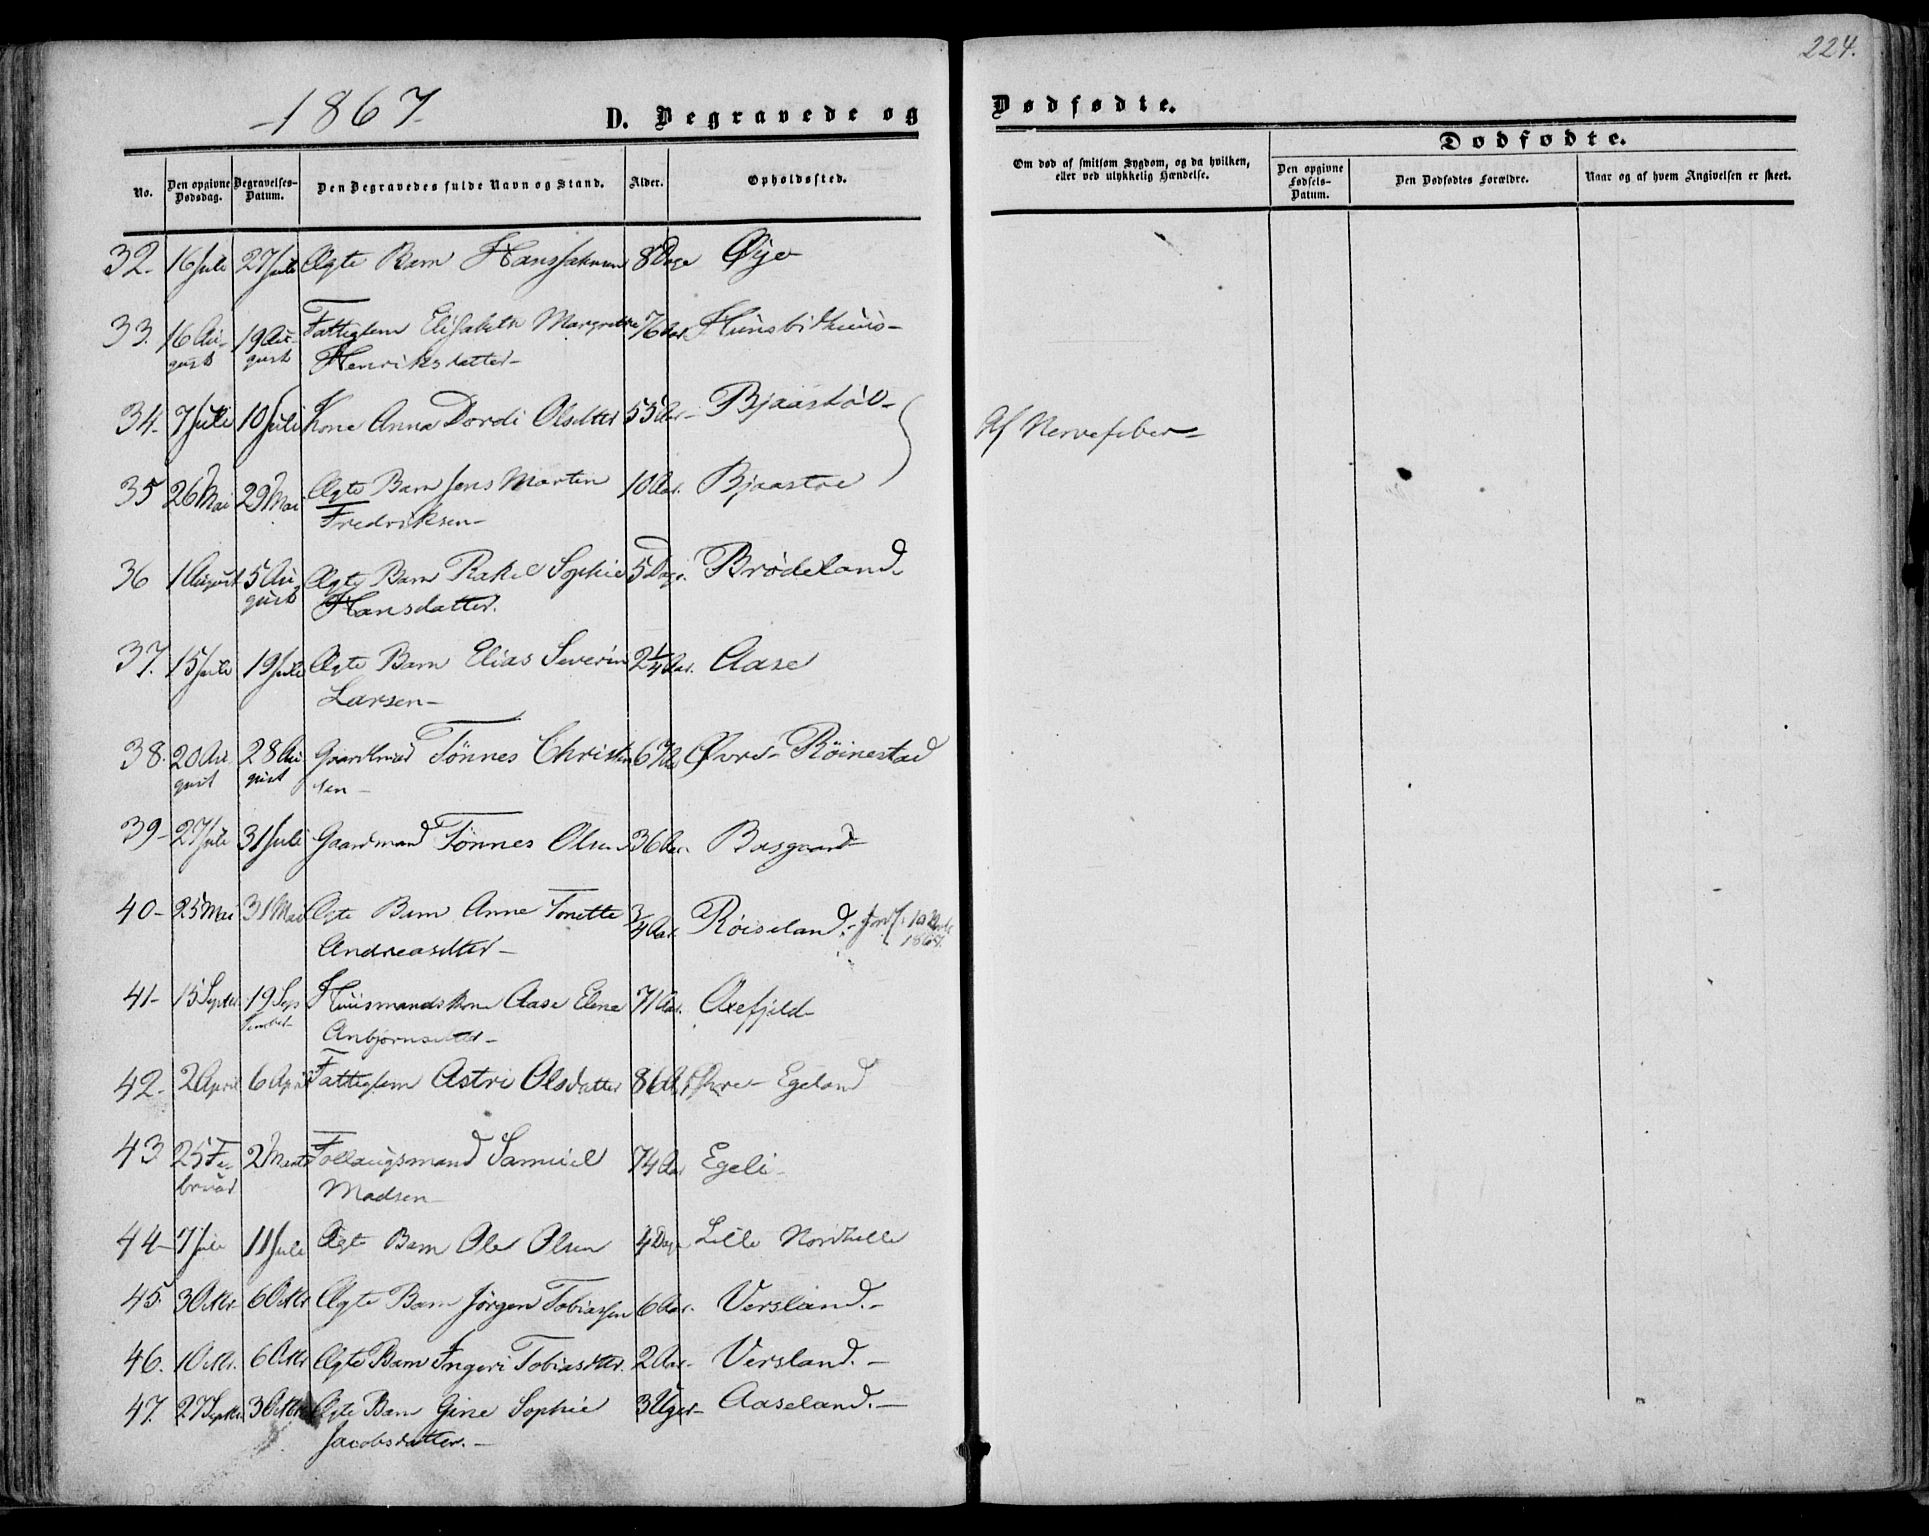 224.
-1867-
D. Begravede og
Dødfødte.
No.
Den opgivne Dødsdag.
Begravelses-Datum.
Den Begravedes fulde Navn og Stand.
Alder.
Opholdssted.
Om død af smitsom Sygdom, og da hvilken, eller ved ulykkelig Hændelse.
Dødfødte.
Den opgivne Fødsels-Datum.
Den Dødfødtes Forældre.
Naar og af hvem Angivelsen er skeet.
32. 16 Juli 27 Juli Ægte Barn 8 Dage Øye
33. 16 Au- 19 Au- Fattiglem Elisabeth Margrethe 76 Aar.
gust gust Henriksdatter-
34. 7 Juli 10 Juli Kone Anna Dordi Olsdtter 55 Aar- Bjaastøl-
Af Nervefeber-
35 26 Mai 29 Mai Ægte Barn Jens Martin 10 Aar. Bjaastøl
Fredriksen-
36 1 August 5 Au Ægte Barn Rakel Sophie 5 Dage. Brødeland.
gust Hansdatter.
37. 15 Juli 19 Juli Ægte Barn Elias Severin 2 1/4 Aar. Aase
Larsen-
38. 20 Au 28 Au Gaardmand Tønnes Christen Øvre- Røinestad
gust gust sen-
39- 27 Juli 31 Juli Gaardmand Tønnes Olsen 36 Aar. Basgaard-
40- 25 Mai 31 Mai Ægte Barn Anne Tonette 3/4 Aar. Røiseland.-
Andreasdtter-
41- 15 Septbr. 19 Sep Huusmandskone Aase Elene 71 Aar. Oxefjeld-
tember- Anbjørnsdtter-
42- 2 April 6 April Fattiglem Astri Olsdatter 86 Aar Øvre- Egeland
43 25 Fe- 2 Marts Follaugsmand Samuel 74 Aar Egeli-
bruar Madsen-
44- 7 Juli 11 Juli Ægte Barn Ole Olsen 4 Dage Lille Nordhelle
45. 3 Oktr. 6 Oktr. Ægte Barn Jørgen Tobiassen 6 Aar. Versland.-
46. 1 Oktr. 6 Oktr. Ægte Barn Ingeri Tobiasdtter. 2 Aar- Versland.-
47. 27 Septbr. 3 Oktr. Ægte Barn Gine Sophie 3 Uger- Aaseland.-
Jacobsdatter.-